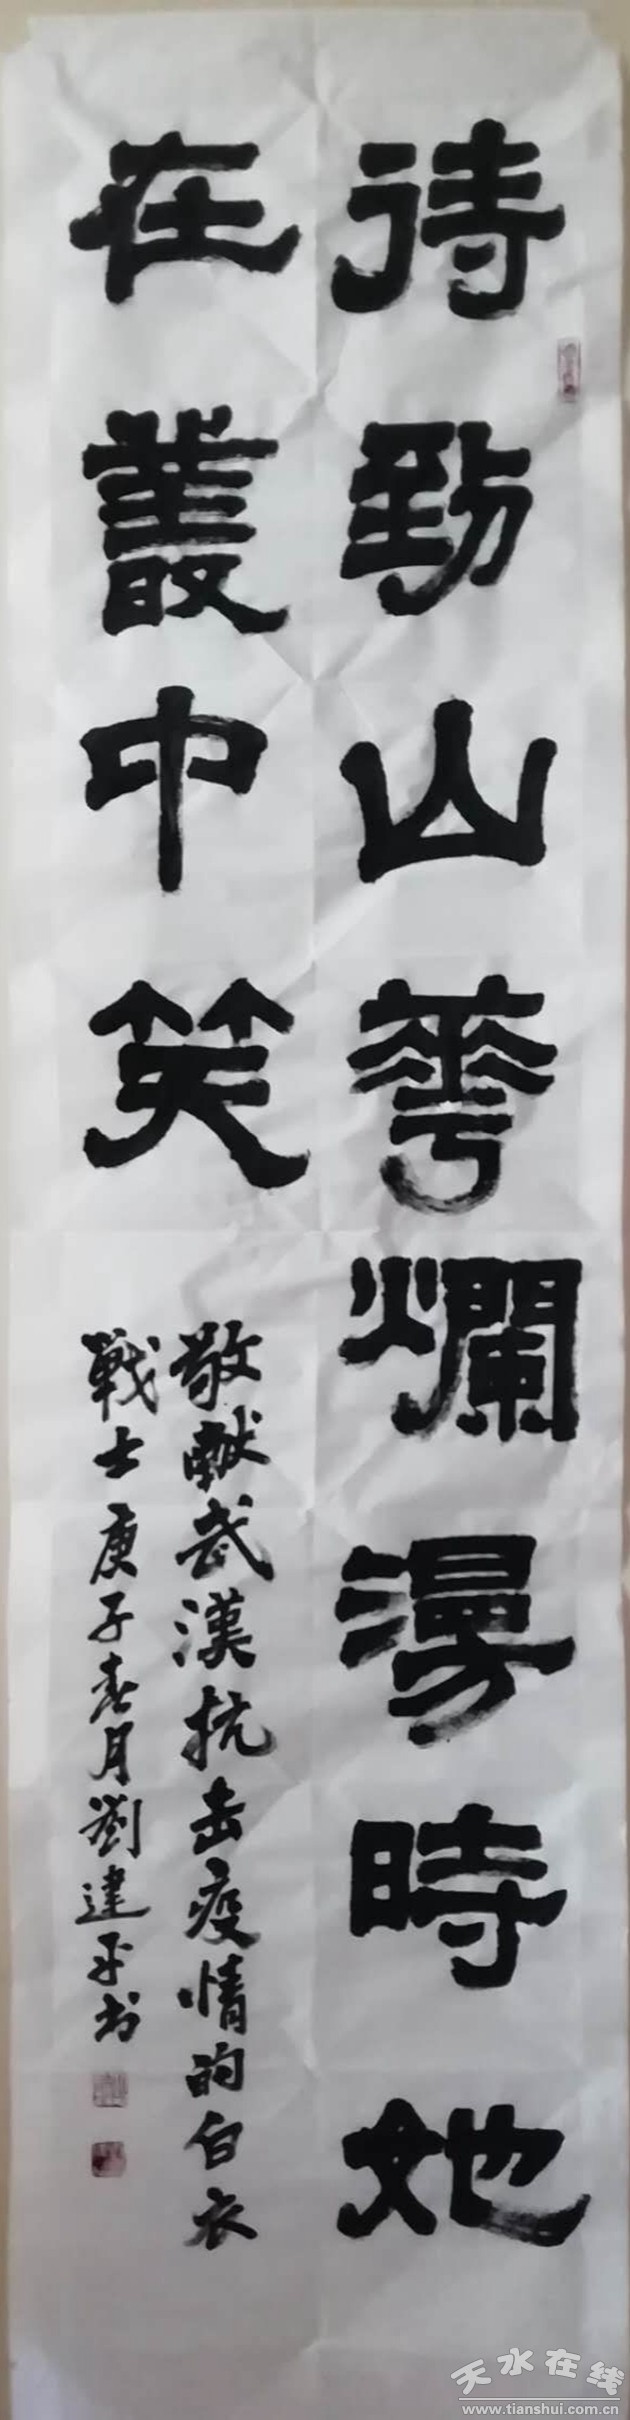 待到山華爛漫時她
在叢中笑
敬獻武漢抗击疫情的白衣
戰士庚子春月劉建平书
天水在线
www.tianshui.com.cn